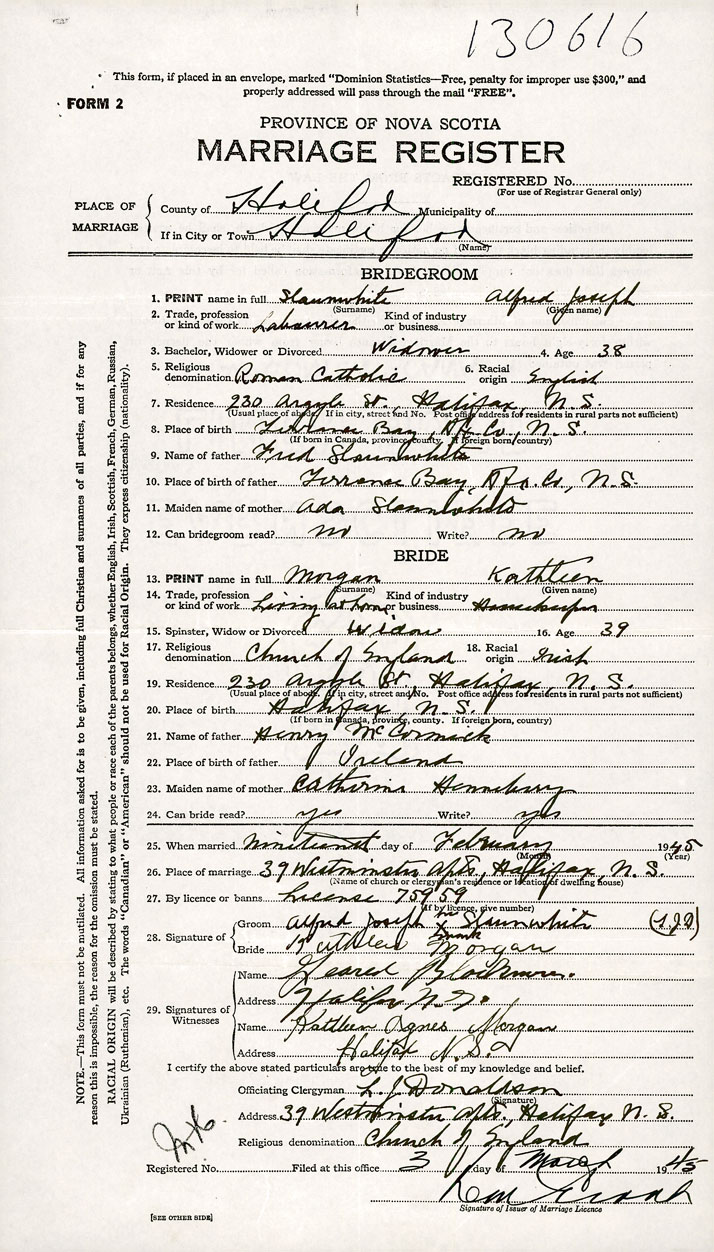 130616
This form, if placed in an envelope, marked "Dominion Statistics—Free, penalty for improper use $300," and
properly addressed will pass through the mail "FREE".
FORM 2
PROVINCE OF NOVA SCOTIA
MARRIAGE REGISTER
REGISTERED No.
(For use of Registrar General only)
PLACE OF MARRIAGE
County of Halifax Municipality of
If in City or Town Halifax
(Name)
BRIDEGROOM
1. PRINT name in full Slaunwhite Alfred Joseph
(Surname) (Given name)
2. Trade, profession or kind of work Labourer Kind of industry or business
3. Bachelor, Widower or Divorced Widower 4. Age 38
5. Religious denomination Roman Catholic 6. Racial origin English
7. Residence 230 Argyle St., Halifax, N.S.
(Usual place of abode. If in city, street and No. Post office address for residents in rural parts not sufficient)
8. Place of birth Terrance Bay, Hfx. Co., N.S.
(If born in Canada, province, county. If foreign born, country)
9. Name of father Fred Slaunwhite
10. Place of birth of father Terrance Bay, Hfx. Co., N.S.
11. Maiden name of mother Ada Slaunwhite
12. Can bridegroom read? no Write? no
BRIDE
13. PRINT name in full Morgan Kathleen
(Surname) (Given name)
14. Trade, profession or kind of work Living at home Kind of industry or business Housekeeper
15. Spinster, Widow or Divorced Widow 16. Age 39
17. Religious denomination Church of England 18. Racial origin Irish
19. Residence 230 Argyle St., Halifax, N.S.
(Usual place of abode. If in city, street and No. Post office address for residents in rural parts not sufficient)
20. Place of birth Halifax, N.S.
(If born in Canada, province, county. If foreign born, country)
21. Name of father Henry McCormack
22. Place of birth of father Ireland
23. Maiden name of mother Catherine Henneberry
24. Can bride read? yes Write? yes
25. When married nineteenth day of February 1945
(Month) (Year)
26. Place of marriage 39 Westminster Apts., Halifax, N.S.
(Name of church or clergyman's residence or location of dwelling house)
27. By licence or banns License 75959
(If by licence, give number)
28. Signature of
Groom Alfred Joseph his Slaunwhite
mark
Bride Kathleen Morgan
29. Signatures of Witnesses
Name Blackmore
Address Halifax N.S.
Name Kathleen Agnes Morgan
Address Halifax N.S.
I certify the above stated particulars are true to the best of my knowledge and belief.
Officiating Clergyman L. J. Donaldson
(Signature)
Address 39 Westminster Apts., Halifax N.S.
Religious denomination Church of England
Registered No. Filed at this office 3 day of March 1945
Signature of Issuer of Marriage Licence
[SEE OTHER SIDE]
NOTE.—This form must not be mutilated. All information asked for is to be given, including full Christian and surnames of all parties, and if for any
reason this is impossible, the reason for the omission must be stated.
RACIAL ORIGIN will be described by stating to what people or race each of the parents belongs, whether English, Irish, Scottish, French, German, Russian,
Ukrainian (Ruthenian), etc. The words "Canadian" or "American" should not be used for Racial Origin. They express citizenship (nationality).